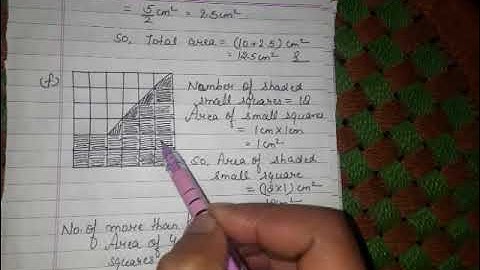 = 5/2 cm² = 2.5cm²
So, Total area = (10+2.5) cm²
= 12.5cm²
(f)
Number of shaded
small squares = 18
Area of small squares
= 1cm×1cm
= 1cm²
So Area of shaded
small square
= (18×1) cm²
No. of more than
Area of 4
squares